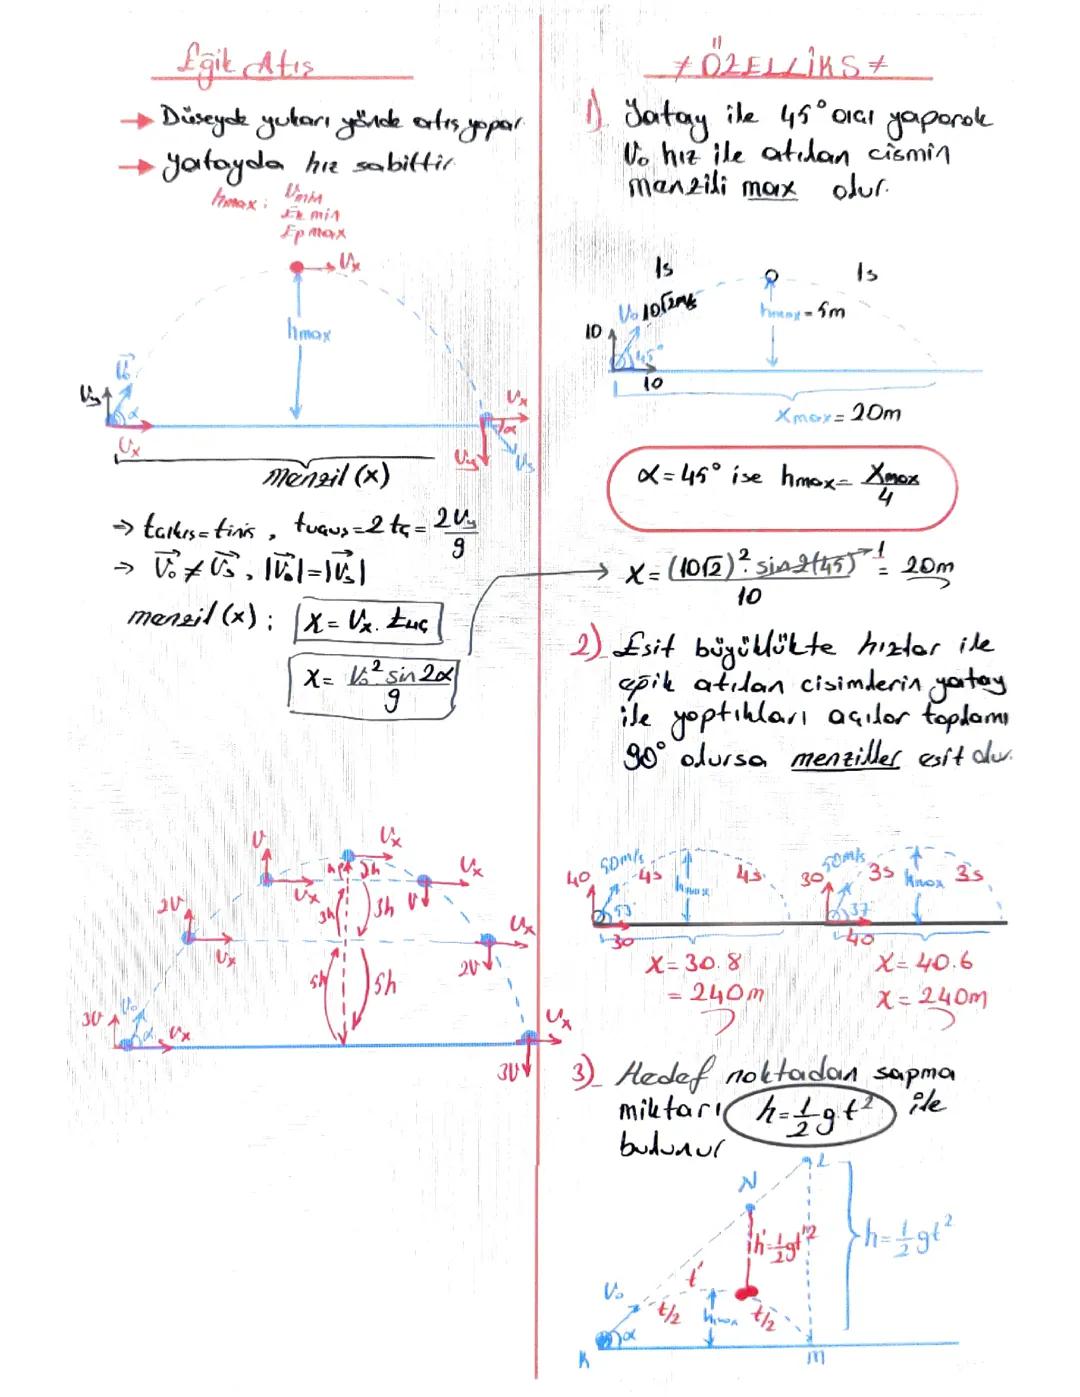 Eğik Atış
→ Düşeyde yukarı yönde atış yapar.
→ yatayda hız sabittir
hmax: Vmin
Ek min
Ep max
Vx
hmax
V₀
Vy
α
Vx
Vx
α
Vy
Vs
menzil (x)
⇒ tçıkış = tiniş, tuçuş = 2tç = 2Vy/g
⇒ V₀ ≠ Vs, |V₀| = |Vs|
menzil (x): X = Vx. tuç
X = V₀² sin2α/g
V Vx
h h
Vx
Vx
V
3h 3h
2V
Vx
Vx
2V
5h 5h
3V V₀
α Vx
Vx
3V
≠ ÖZELLİKS ≠
1) Yatay ile 45° açı yaparak
V₀ hız ile atılan cismin
menzili max olur.
1s 1s
V₀ 10√2m/s
hmax = 5m
10
45°
10
Xmax = 20m
α = 45° ise hmax = Xmax/4
X = (10√2)². sin2(45)/10 →1 = 20m
2) Eşit büyüklükte hızlar ile
eğik atılan cisimlerin yatay
ile yaptıkları açılar toplamı
90° olursa menziller eşit olur.
50m/s 4s 4s
40 hmax
53°
30
X = 30.8
= 240m
50m/s 3s 3s
30 hmax
37°
40
X = 40.6
X = 240m
3) Hedef noktadan sapma
miktarı h = 1/2 gt² ile
bulunur
L
N
h' = 1/2 gt'²
h = 1/2 gt²
t'
V₀
t/2 hmax t/2
α
K M